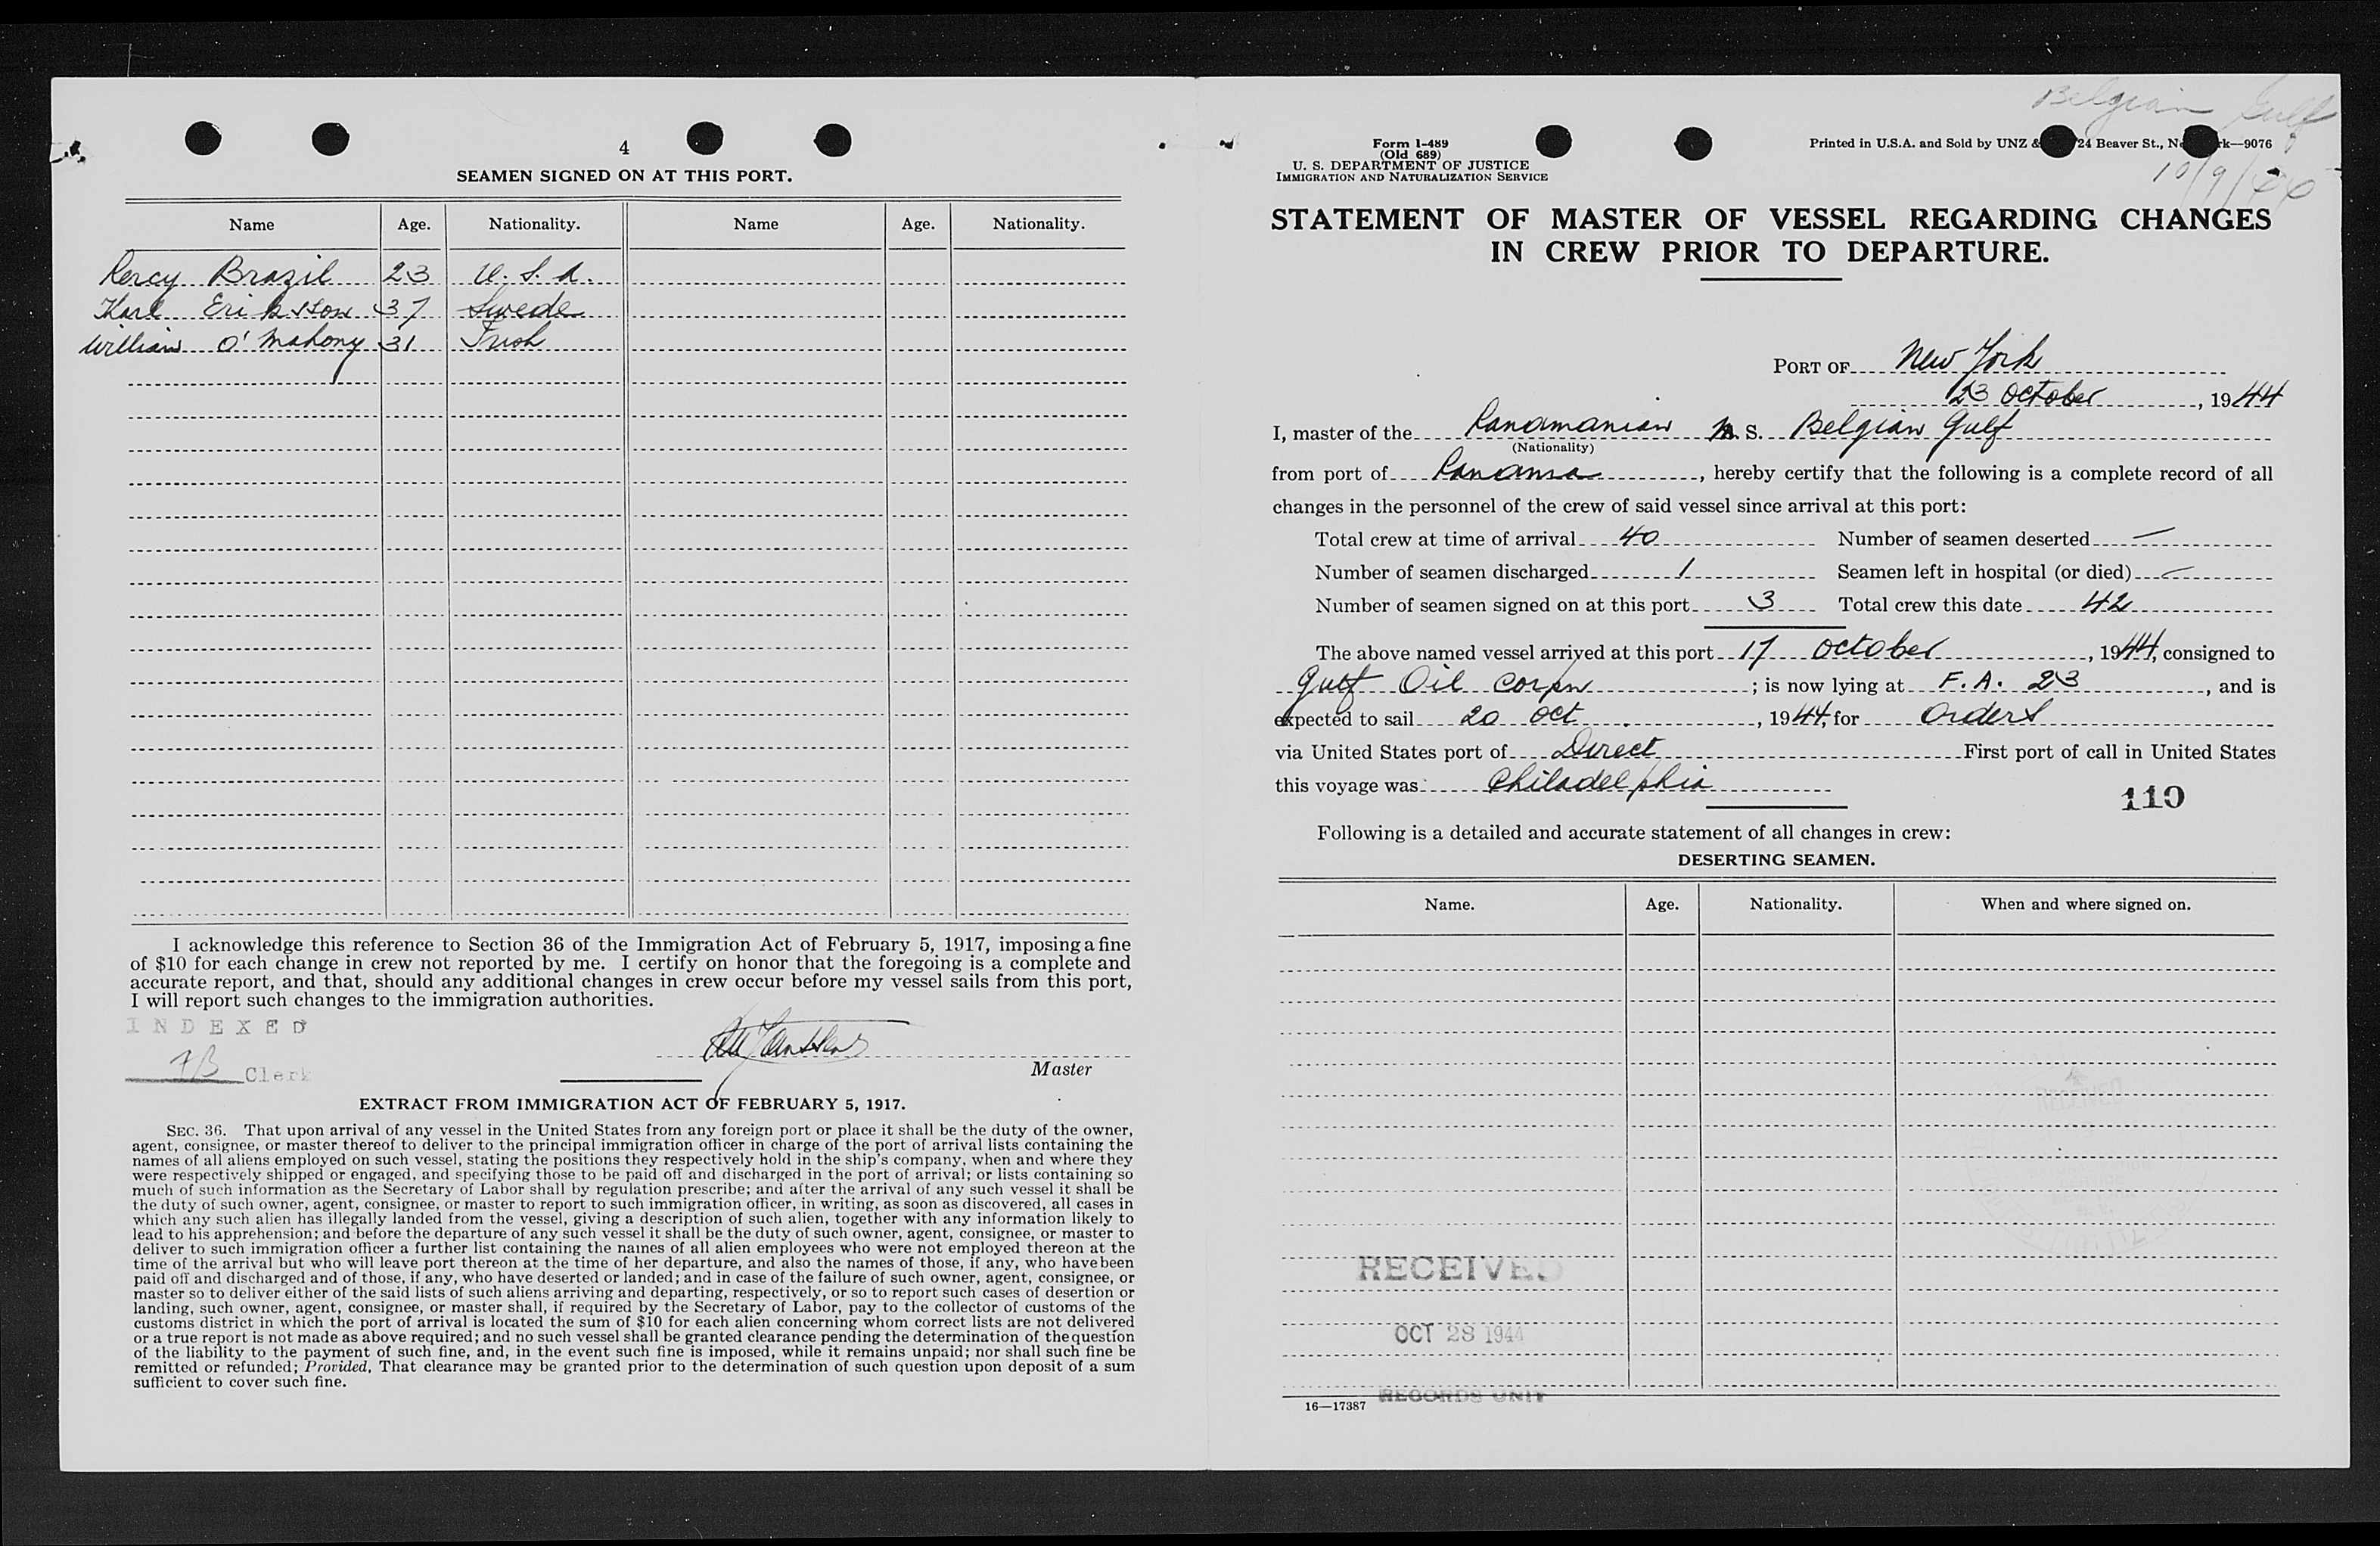 4
SEAMEN SIGNED ON AT THIS PORT.
Name Age. Nationality. Name Age. Nationality.
Percy Brazil 23 U.S.A.
Karl Eriksson 37 Swede
William O'Mahony 31 Irish
I acknowledge this reference to Section 36 of the Immigration Act of February 5, 1917, imposing a fine
of $10 for each change in crew not reported by me. I certify on honor that the foregoing is a complete and
accurate report, and that, should any additional changes in crew occur before my vessel sails from this port,
I will report such changes to the immigration authorities.
INDEXED
Clerk
Master
EXTRACT FROM IMMIGRATION ACT OF FEBRUARY 5, 1917.
SEC. 36. That upon arrival of any vessel in the United States from any foreign port or place it shall be the duty of the owner,
agent, consignee, or master thereof to deliver to the principal immigration officer in charge of the port of arrival lists containing the
names of all aliens employed on such vessel, stating the positions they respectively hold in the ship's company, when and where they
were respectively shipped or engaged, and specifying those to be paid off and discharged in the port of arrival; or lists containing so
much of such information as the Secretary of Labor shall by regulation prescribe; and after the arrival of any such vessel it shall be
the duty of such owner, agent, consignee, or master to report to such immigration officer, in writing, as soon as discovered, all cases in
which any such alien has illegally landed from the vessel, giving a description of such alien, together with any information likely to
lead to his apprehension; and before the departure of any such vessel it shall be the duty of such owner, agent, consignee, or master to
deliver to such immigration officer a further list containing the names of all alien employees who were not employed thereon at the
time of the arrival but who will leave port thereon at the time of her departure, and also the names of those, if any, who have been
paid off and discharged and of those, if any, who have deserted or landed; and in case of the failure of such owner, agent, consignee, or
master so to deliver either of the said lists of such aliens arriving and departing, respectively, or so to report such cases of desertion or
landing, such owner, agent, consignee, or master shall, if required by the Secretary of Labor, pay to the collector of customs of the
customs district in which the port of arrival is located the sum of $10 for each alien concerning whom correct lists are not delivered
or a true report is not made as above required; and no such vessel shall be granted clearance pending the determination of the question
of the liability to the payment of such fine, and, in the event such fine is imposed, while it remains unpaid; nor shall such fine be
remitted or refunded; Provided, That clearance may be granted prior to the determination of such question upon deposit of a sum
sufficient to cover such fine.
Belgian Gulf
Form I-489
(Old 689)
U. S. DEPARTMENT OF JUSTICE
IMMIGRATION AND NATURALIZATION SERVICE
Printed in U.S.A. and Sold by UNZ & 24 Beaver St., 9076
STATEMENT OF MASTER OF VESSEL REGARDING CHANGES
IN CREW PRIOR TO DEPARTURE.
PORT OF New York
23 October, 1944
I, master of the Panamanian M.S. Belgian Gulf
(Nationality)
from port of Panama, hereby certify that the following is a complete record of all
changes in the personnel of the crew of said vessel since arrival at this port:
Total crew at time of arrival 40 Number of seamen deserted —
Number of seamen discharged 1 Seamen left in hospital (or died) —
Number of seamen signed on at this port 3 Total crew this date 42
The above named vessel arrived at this port 17 October, 1944, consigned to
Gulf Oil Corpn; is now lying at F.A. 23, and is
expected to sail 20 Oct, 1944, for Orders
via United States port of Direct First port of call in United States
this voyage was: Philadelphia
110
Following is a detailed and accurate statement of all changes in crew:
DESERTING SEAMEN.
Name. Age. Nationality. When and where signed on.
RECEIVED
OCT 28 1944
RECORDS UNIT
16—17387